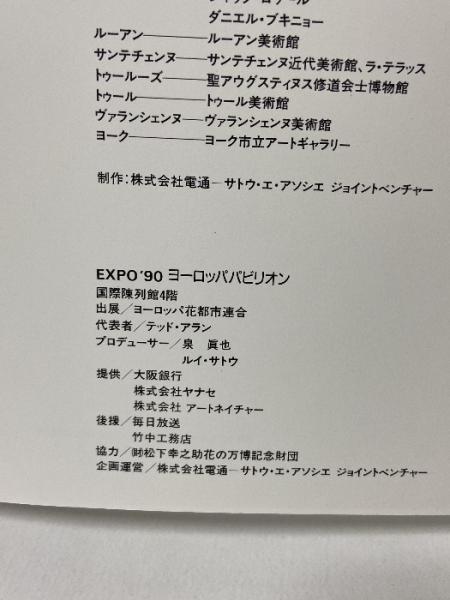 ダニエル・ブキニョー
ルーアン──ルーアン美術館
サンテチェンヌ──サンテチェンヌ近代美術館、ラ・テラッス
トゥールーズ──聖アウグスティヌス修道会士博物館
トゥール──トゥール美術館
ヴァランシェンヌ──ヴァランシェンヌ美術館
ヨーク──ヨーク市立アートギャラリー
制作:株式会社電通─サトウ・エ・アソシエ ジョイントベンチャー
EXPO'90 ヨーロッパパビリオン
国際陳列館4階
出展/ヨーロッパ花都市連合
代表者/テッド・アラン
プロデューサー/泉 眞也
ルイ・サトウ
提供/大阪銀行
株式会社ヤナセ
株式会社 アートネイチャー
後援/毎日放送
竹中工務店
協力/㈶松下幸之助花の万博記念財団
企画運営/株式会社電通─サトウ・エ・アソシエ ジョイントベンチャー